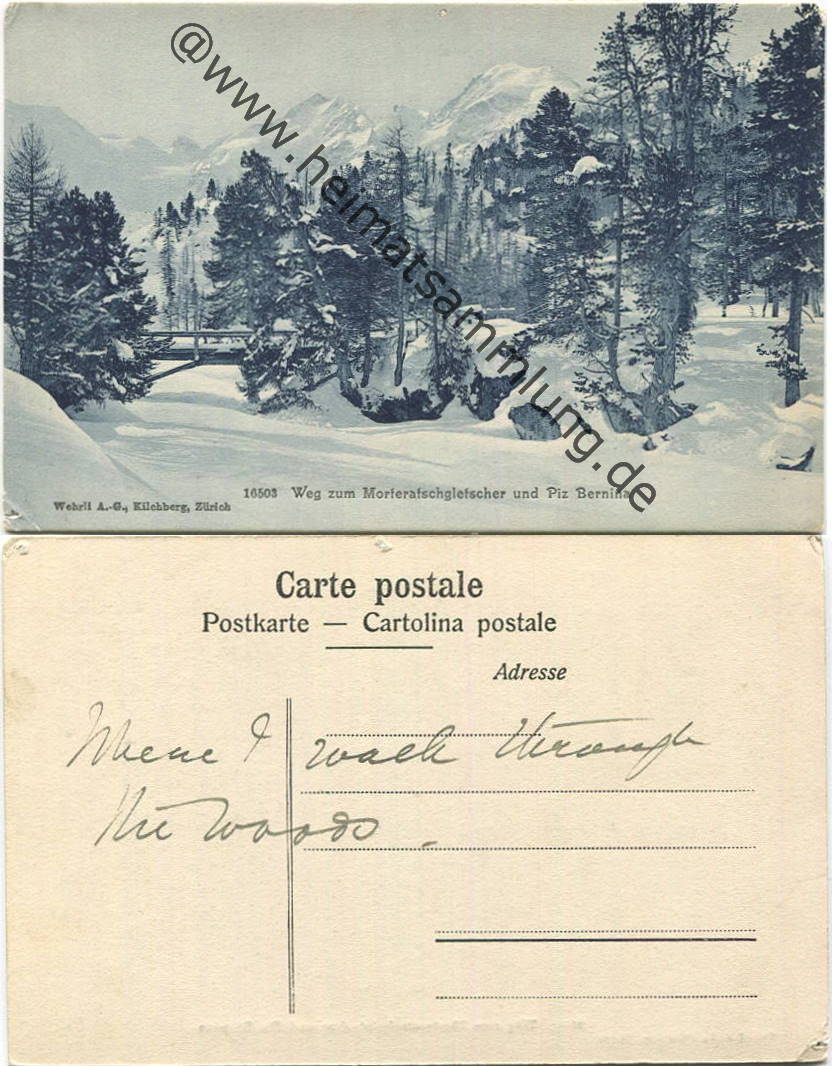 @www.heimatsammlung.de
16503 Weg zum Morteratschgletscher und Piz Bernina
Wehrli A.-G., Kilchberg, Zürich
Carte postale
Postkarte — Cartolina postale
Adresse
Where I walk through
the woods.